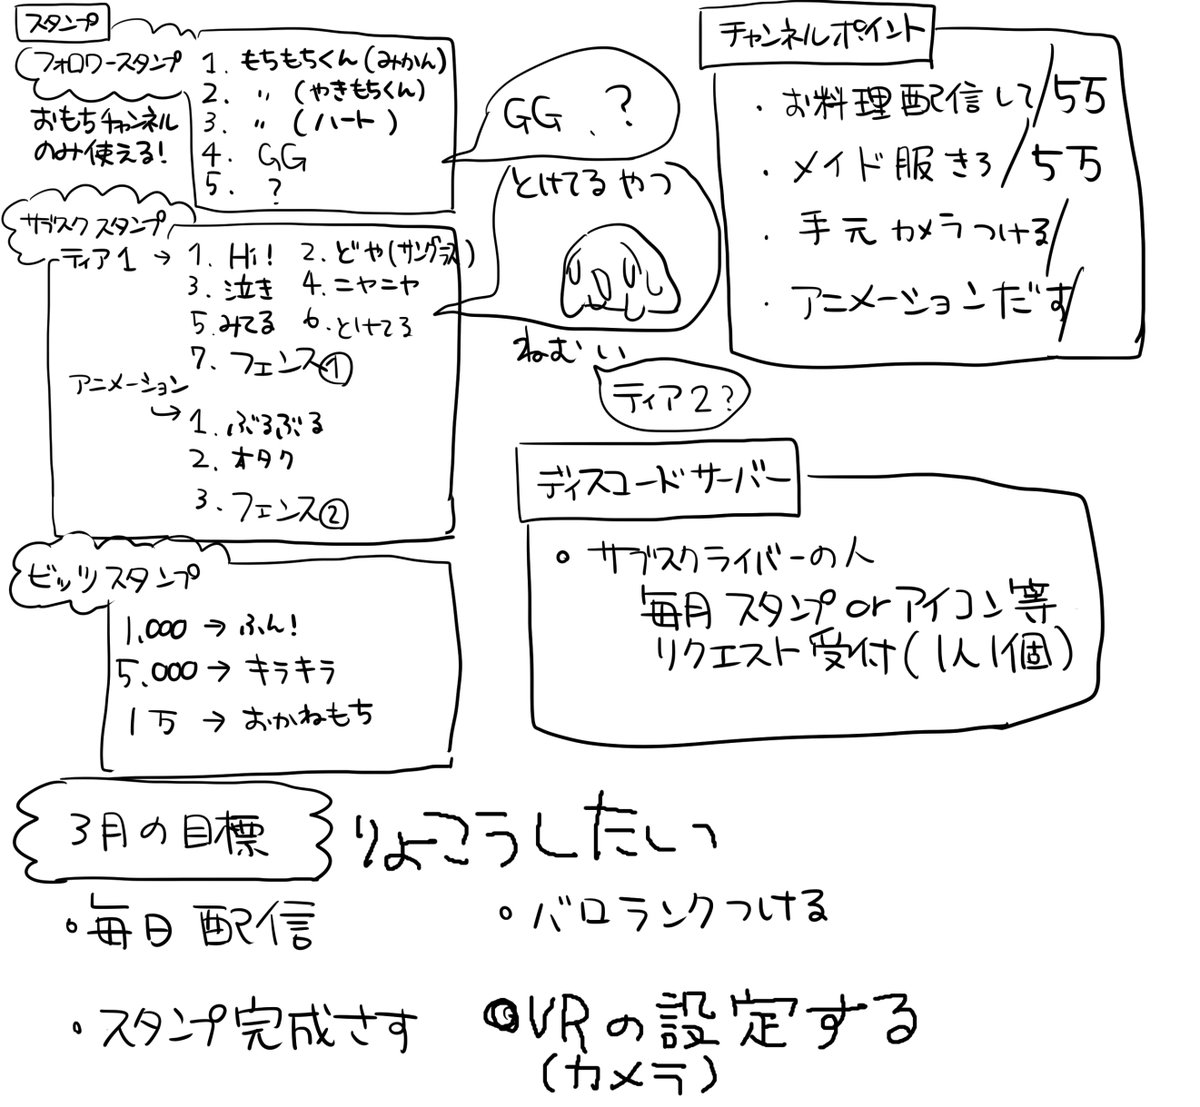 スタンプ
フォロワースタンプ
おもちチャンネル
のみ使える!
1. もちもちくん(みかん)
2. 〃 (やきもちくん)
3. 〃 (ハート)
4. GG
5. ?
GG ?
サブスクスタンプ
ティア1 →
1. Hi! 2. どや(サングラス)
3. 泣き 4. ニヤニヤ
5. みてる 6. とけてる
7. フェンス①
アニメーション
→ 1. ぶるぶる
2. オタク
3. フェンス②
とけてるやつ
ねむい
ティア2?
ビッツスタンプ
1,000 → ふん!
5.000 → キラキラ
1万 → おかねもち
チャンネルポイント
・お料理配信して/5万
・メイド服きろ/5万
・手元カメラつける/
・アニメーションだす/
ディスコードサーバー
・サブスクライバーの人
毎月スタンプorアイコン等
リクエスト受付(1人1個)
3月の目標
りょこうしたいっ
・毎日配信
・バロランクつける
・スタンプ完成さす
・VRの設定する
(カメラ)